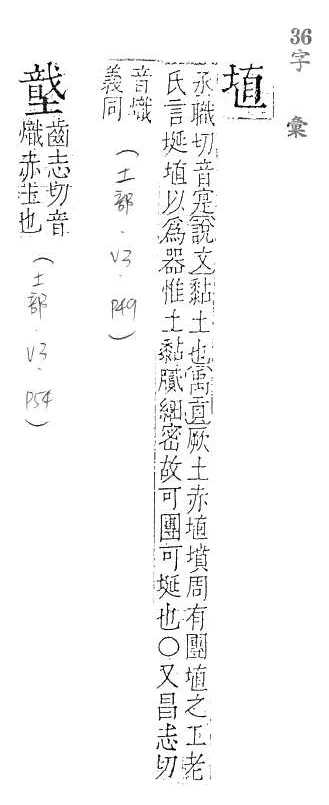 36字彙
埴
丞職切音寔說文黏土也禹貢厥土赤埴墳周有團埴之工老
氏言埏埴以為器惟土黏膩細密故可團可埏也○又昌志切
音熾
義同
(土部.V3.P49)
戠土
齒志切音
熾赤土也
(土部.V3.P54)